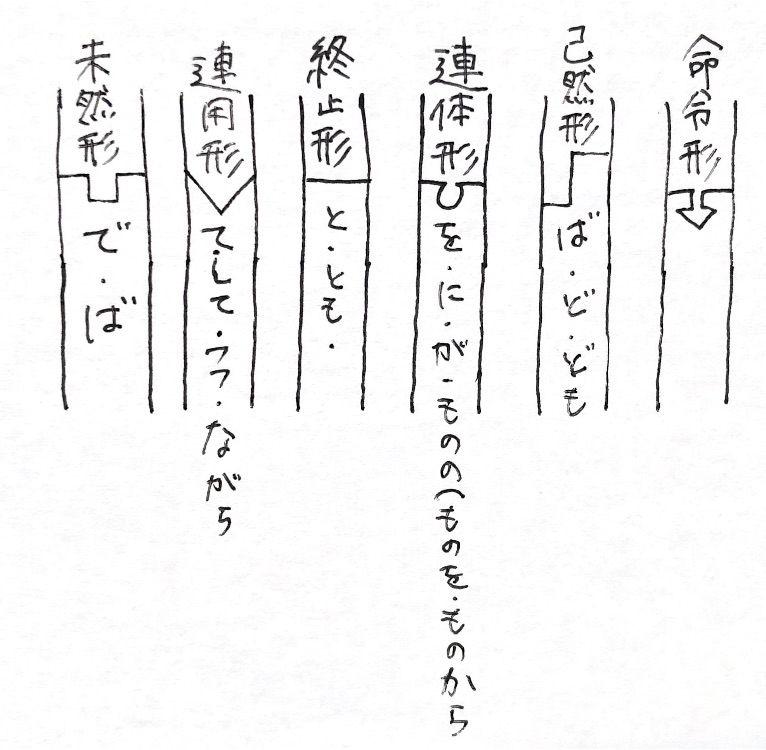 未然形
で・ば
連用形
て・して・つつ・ながら
終止形
と・とも・
連体形
を・に・が・ものの(ものを・ものから
已然形
ば・ど・ども
命令形